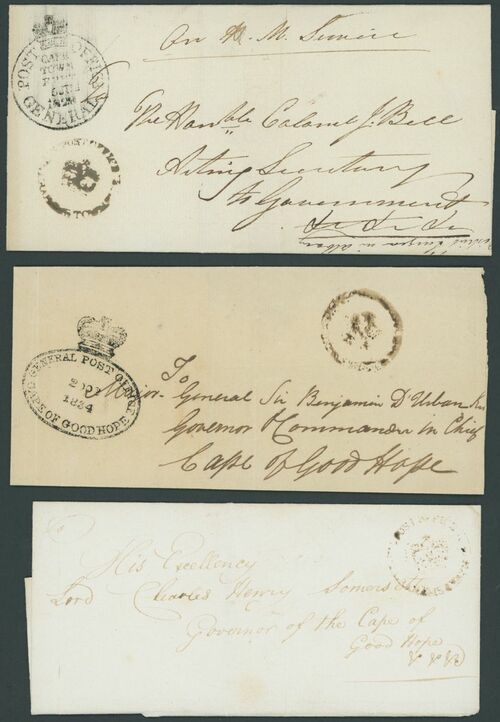 On H. M. Service
POST OFFICE
CAPE
TOWN
GENERAL
The Honble Colonel J. Bell
Acting Secretary
to Government
&c &c &c
GENERAL POST OFFICE
1834
CAPE OF GOOD HOPE
To
Major General Sir Benjamin D'Urban
Governor & Commander in Chief
Cape of Good Hope
To
POST OFFICE
His Excellency
Lord Charles Henry Somerset
Governor of the Cape of
Good Hope
&c &c &c